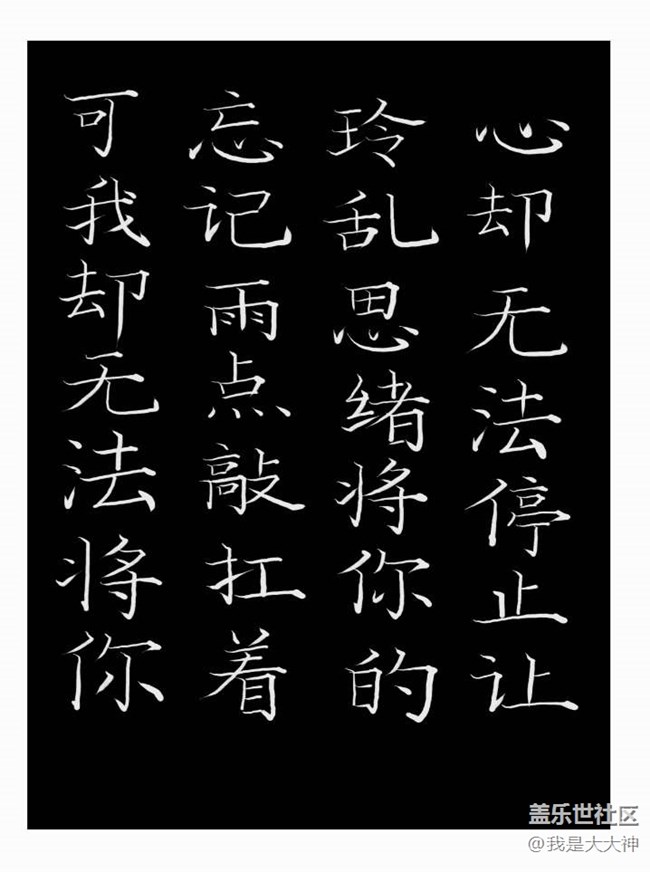 可我却无法将你
忘记雨点敲扛着
玲乱思绪将你的
心却无法停止让
盖乐世社区
@我是大大神